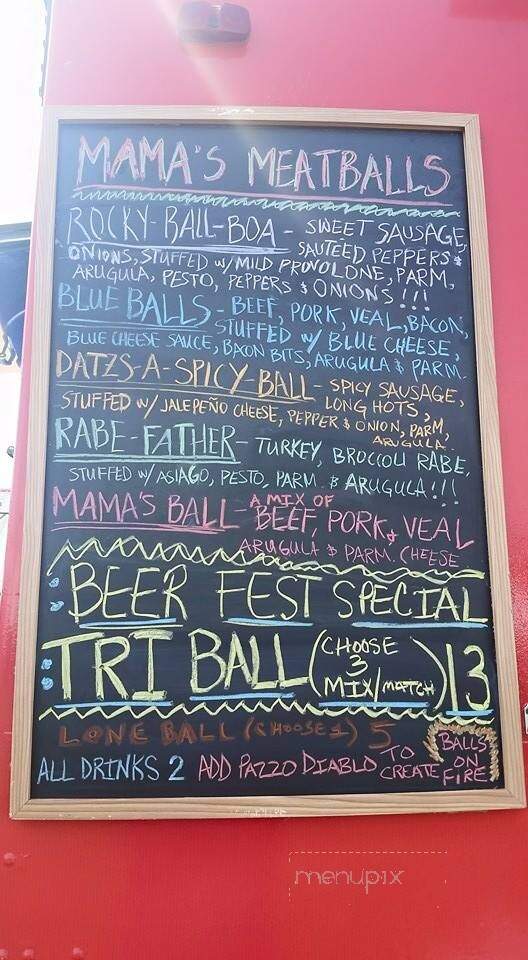 MAMA'S MEATBALLS
ROCKY-BALL-BOA - SWEET SAUSAGE,
SAUTEED PEPPERS &
ONIONS, STUFFED W/ MILD PROVOLONE, PARM,
ARUGULA, PESTO, PEPPERS & ONIONS!!!
BLUE BALLS - BEEF, PORK, VEAL, BACON,
STUFFED W/ BLUE CHEESE,
BLUE CHEESE SAUCE, BACON BITS, ARUGULA & PARM
DATZS-A-SPICY-BALL - SPICY SAUSAGE,
LONG HOTS,
STUFFED W/ JALEPEÑO CHEESE, PEPPER & ONION, PARM,
ARUGULA
RABE-FATHER - TURKEY, BROCCOLI RABE,
STUFFED W/ ASIAGO, PESTO, PARM & ARUGULA!!!
MAMA'S BALL - A MIX OF
BEEF, PORK, & VEAL
ARUGULA & PARM. CHEESE
: BEER FEST SPECIAL
: TRI BALL (CHOOSE 3 MIX/MATCH) 13
LONE BALL (CHOOSE 1) 5
ALL DRINKS 2 ADD PAZZO DIABLO TO CREATE BALLS ON FIRE
menupix